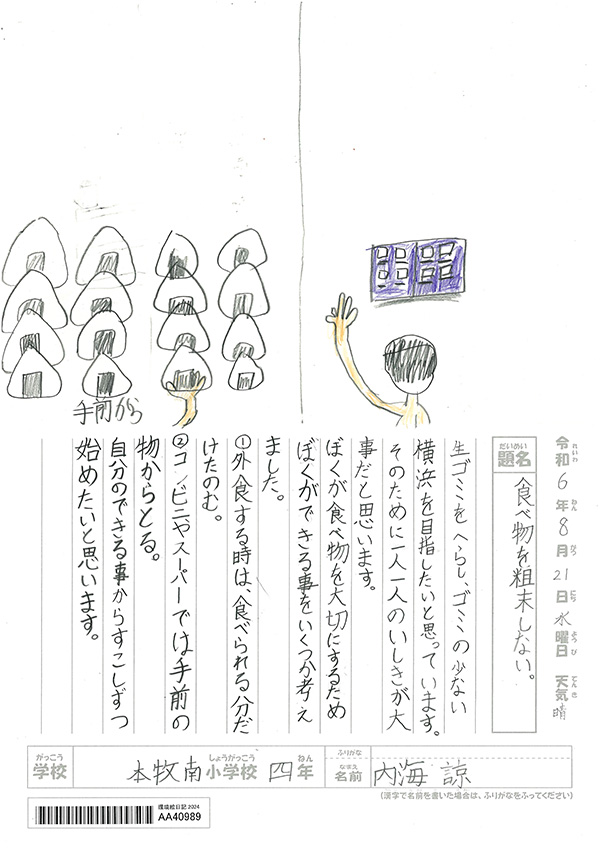 手前から
令和6年8月21日水曜日 天気 晴
れいわ ねん がつ にち ようび てんき
だいめい
題名 食べ物を粗末しない。
生ゴミをへらし、ゴミの少ない
横浜を目指したいと思っています。
そのために一人一人のいしきが大
事だと思います。
ぼくが食べ物を大切にするため
ぼくができる事をいくつか考え
ました。
①外食する時は、食べられる分だ
けたのむ。
②コンビニやスーパーでは手前の
物からとる。
自分のできる事からすこしずつ
始めたいと思います。
がっこう しょうがっこう ねん
学校 本牧南小学校 四年
ふりがな
なまえ
名前 内海 諒
(漢字で名前を書いた場合は、ふりがなをふってください)
環境絵日記 2024
AA40989